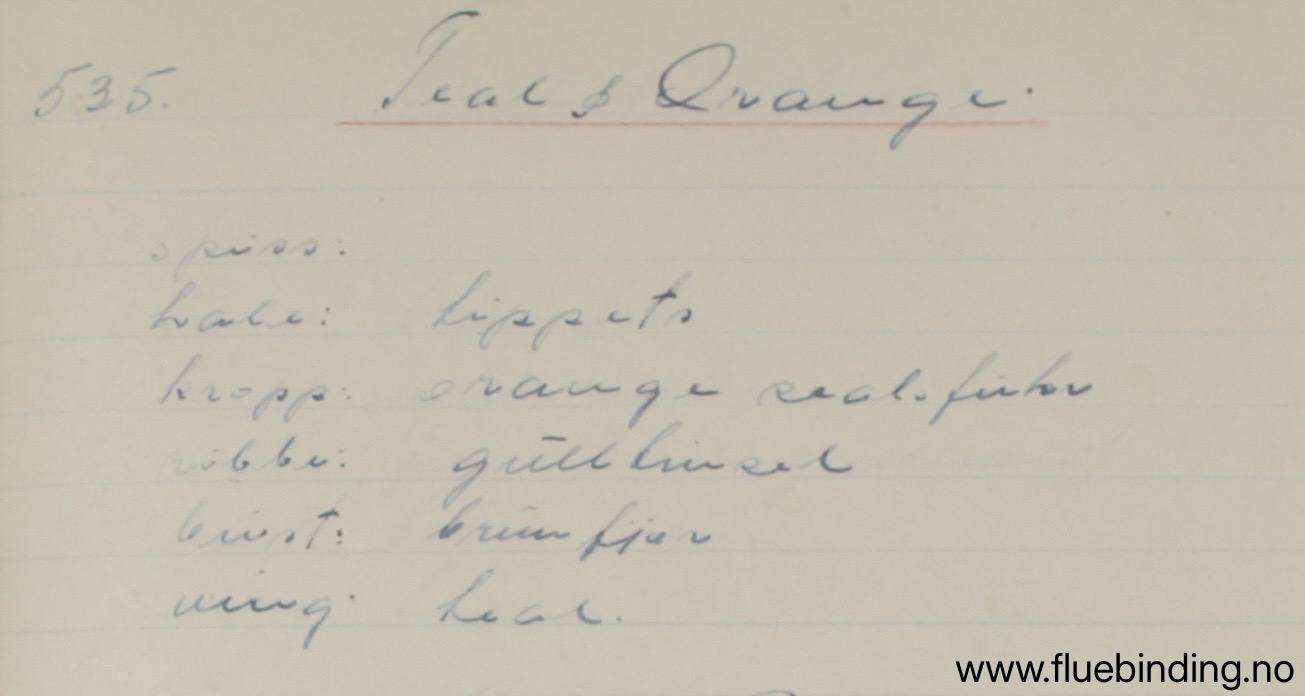 535. Teal & Orange.
spiss:
hale: tippets
kropp: orange seal-fuhr
ribbe: gulltinsel
bryst: brun fjær
ving: teal.
www.fluebinding.no